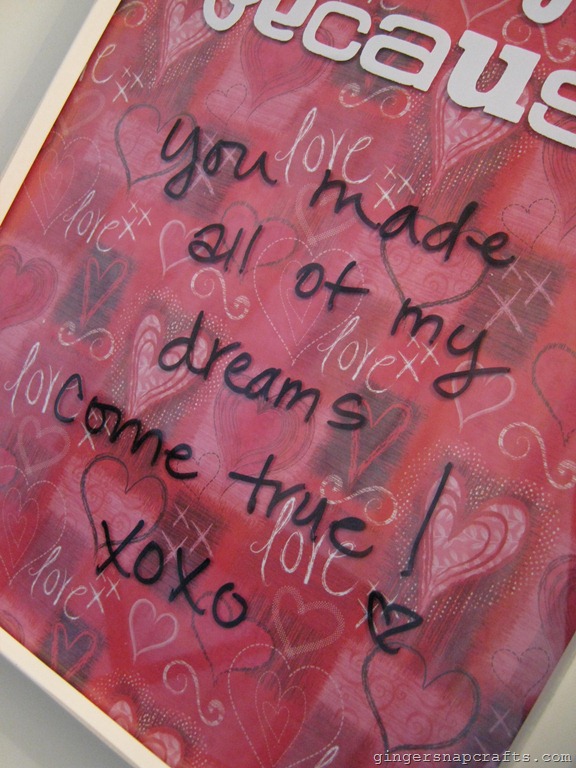 becaus
you made
all of my
dreams
come true!
xoxo
love xx
love xx
love xx
love
love
love xx
xx
xx
xx
gingersnapcrafts.com